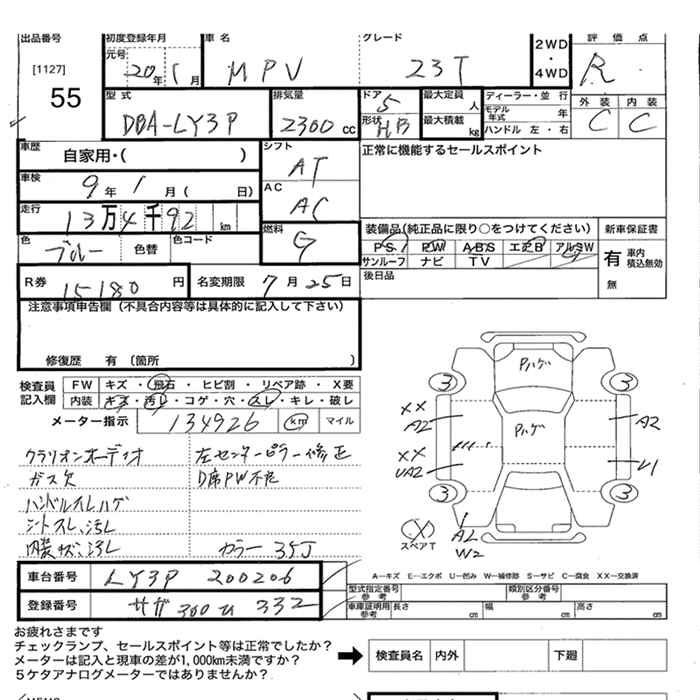 出品番号 初度登録年月 車名 グレード 2WD・4WD 評価点
[1127] 元号 20年 1月 MPV 23T R
55 型式 排気量 ドア 5 最大定員 人 ディーラー・並行 外装 内装
DBA-LY3P 2300cc 形状 HB 最大積載 kg モデル年式 年 ハンドル 左・右 C C
車歴 自家用・( ) シフト AT 正常に機能するセールスポイント
車検 9年 1月( 日) AC AC
走行 13万4千92 km 燃料 G 装備品(純正品に限り○をつけてください) 新車保証書
色 ブルー 色替 色コード PS PW ABS エアB アルミSW 有 車内積込無効
サンルーフ ナビ TV 無
R券 15180円 名変期限 7月25日 後日品
注意事項申告欄(不具合内容等は具体的に記入して下さい)
修復歴 有(箇所
検査員記入欄 FW キズ・飛石・ヒビ割・リペア跡・X要
内装 キズ・汚レ・コゲ・穴・スレ・キレ・破レ
メーター指示 134926 km マイル
クラリオンオーディオ 左センターピラー修正
ガス欠 D席PW不良
ハンドルスレハゲ
シートスレ、汚レ
内装キズ、汚レ カラー 35J
Pハゲ
3 3
XX A2 A2
Pハゲ
XX UA2 U1
3 3
X スペアT A2 W2
A―キズ E―エクボ U―凹み W―補修跡 S―サビ C―腐食 XX―交換済
車台番号 LY3P 200206 型式指定番号 参考 類別区分番号 参考
登録番号 300 332 車庫証明用 参考 長さ cm 幅 cm 高さ cm
お疲れさまです
チェックランプ、セールスポイント等は正常でしたか?
メーターは記入と現車の差が1,000km未満ですか? 検査員名 内外 下廻
5ケタアナログメーターではありませんか?